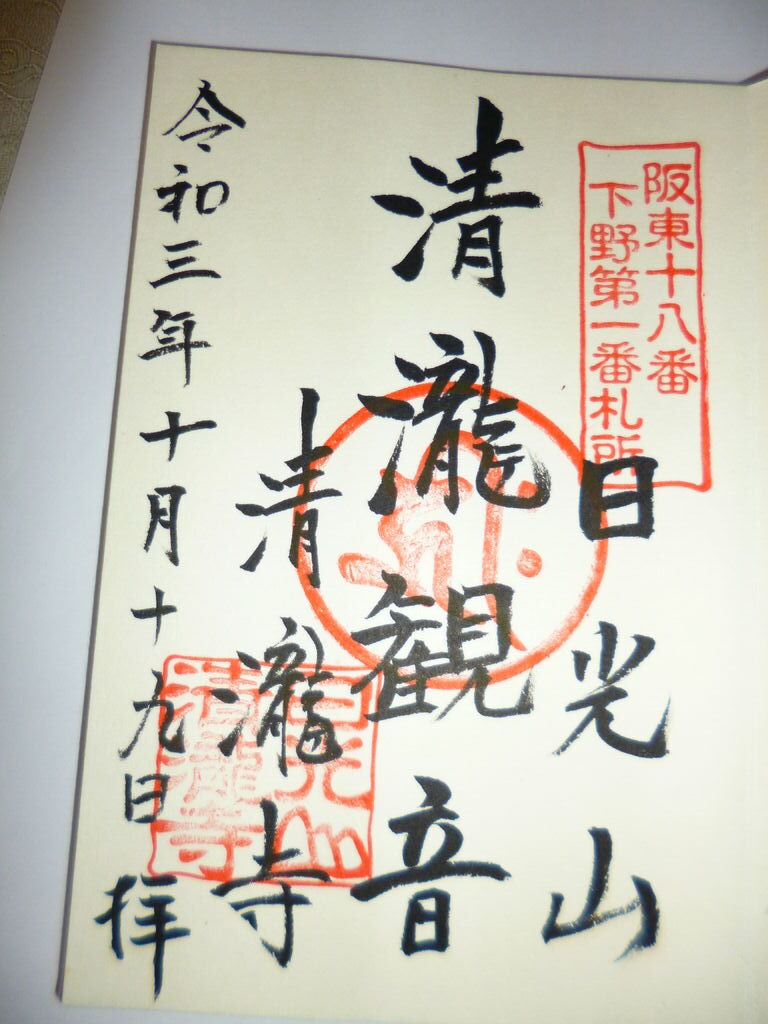 阪東十八番
下野第一番札所
日光山
清瀧観音
清瀧寺
令和三年十月十九日
拝
日光山
清瀧寺